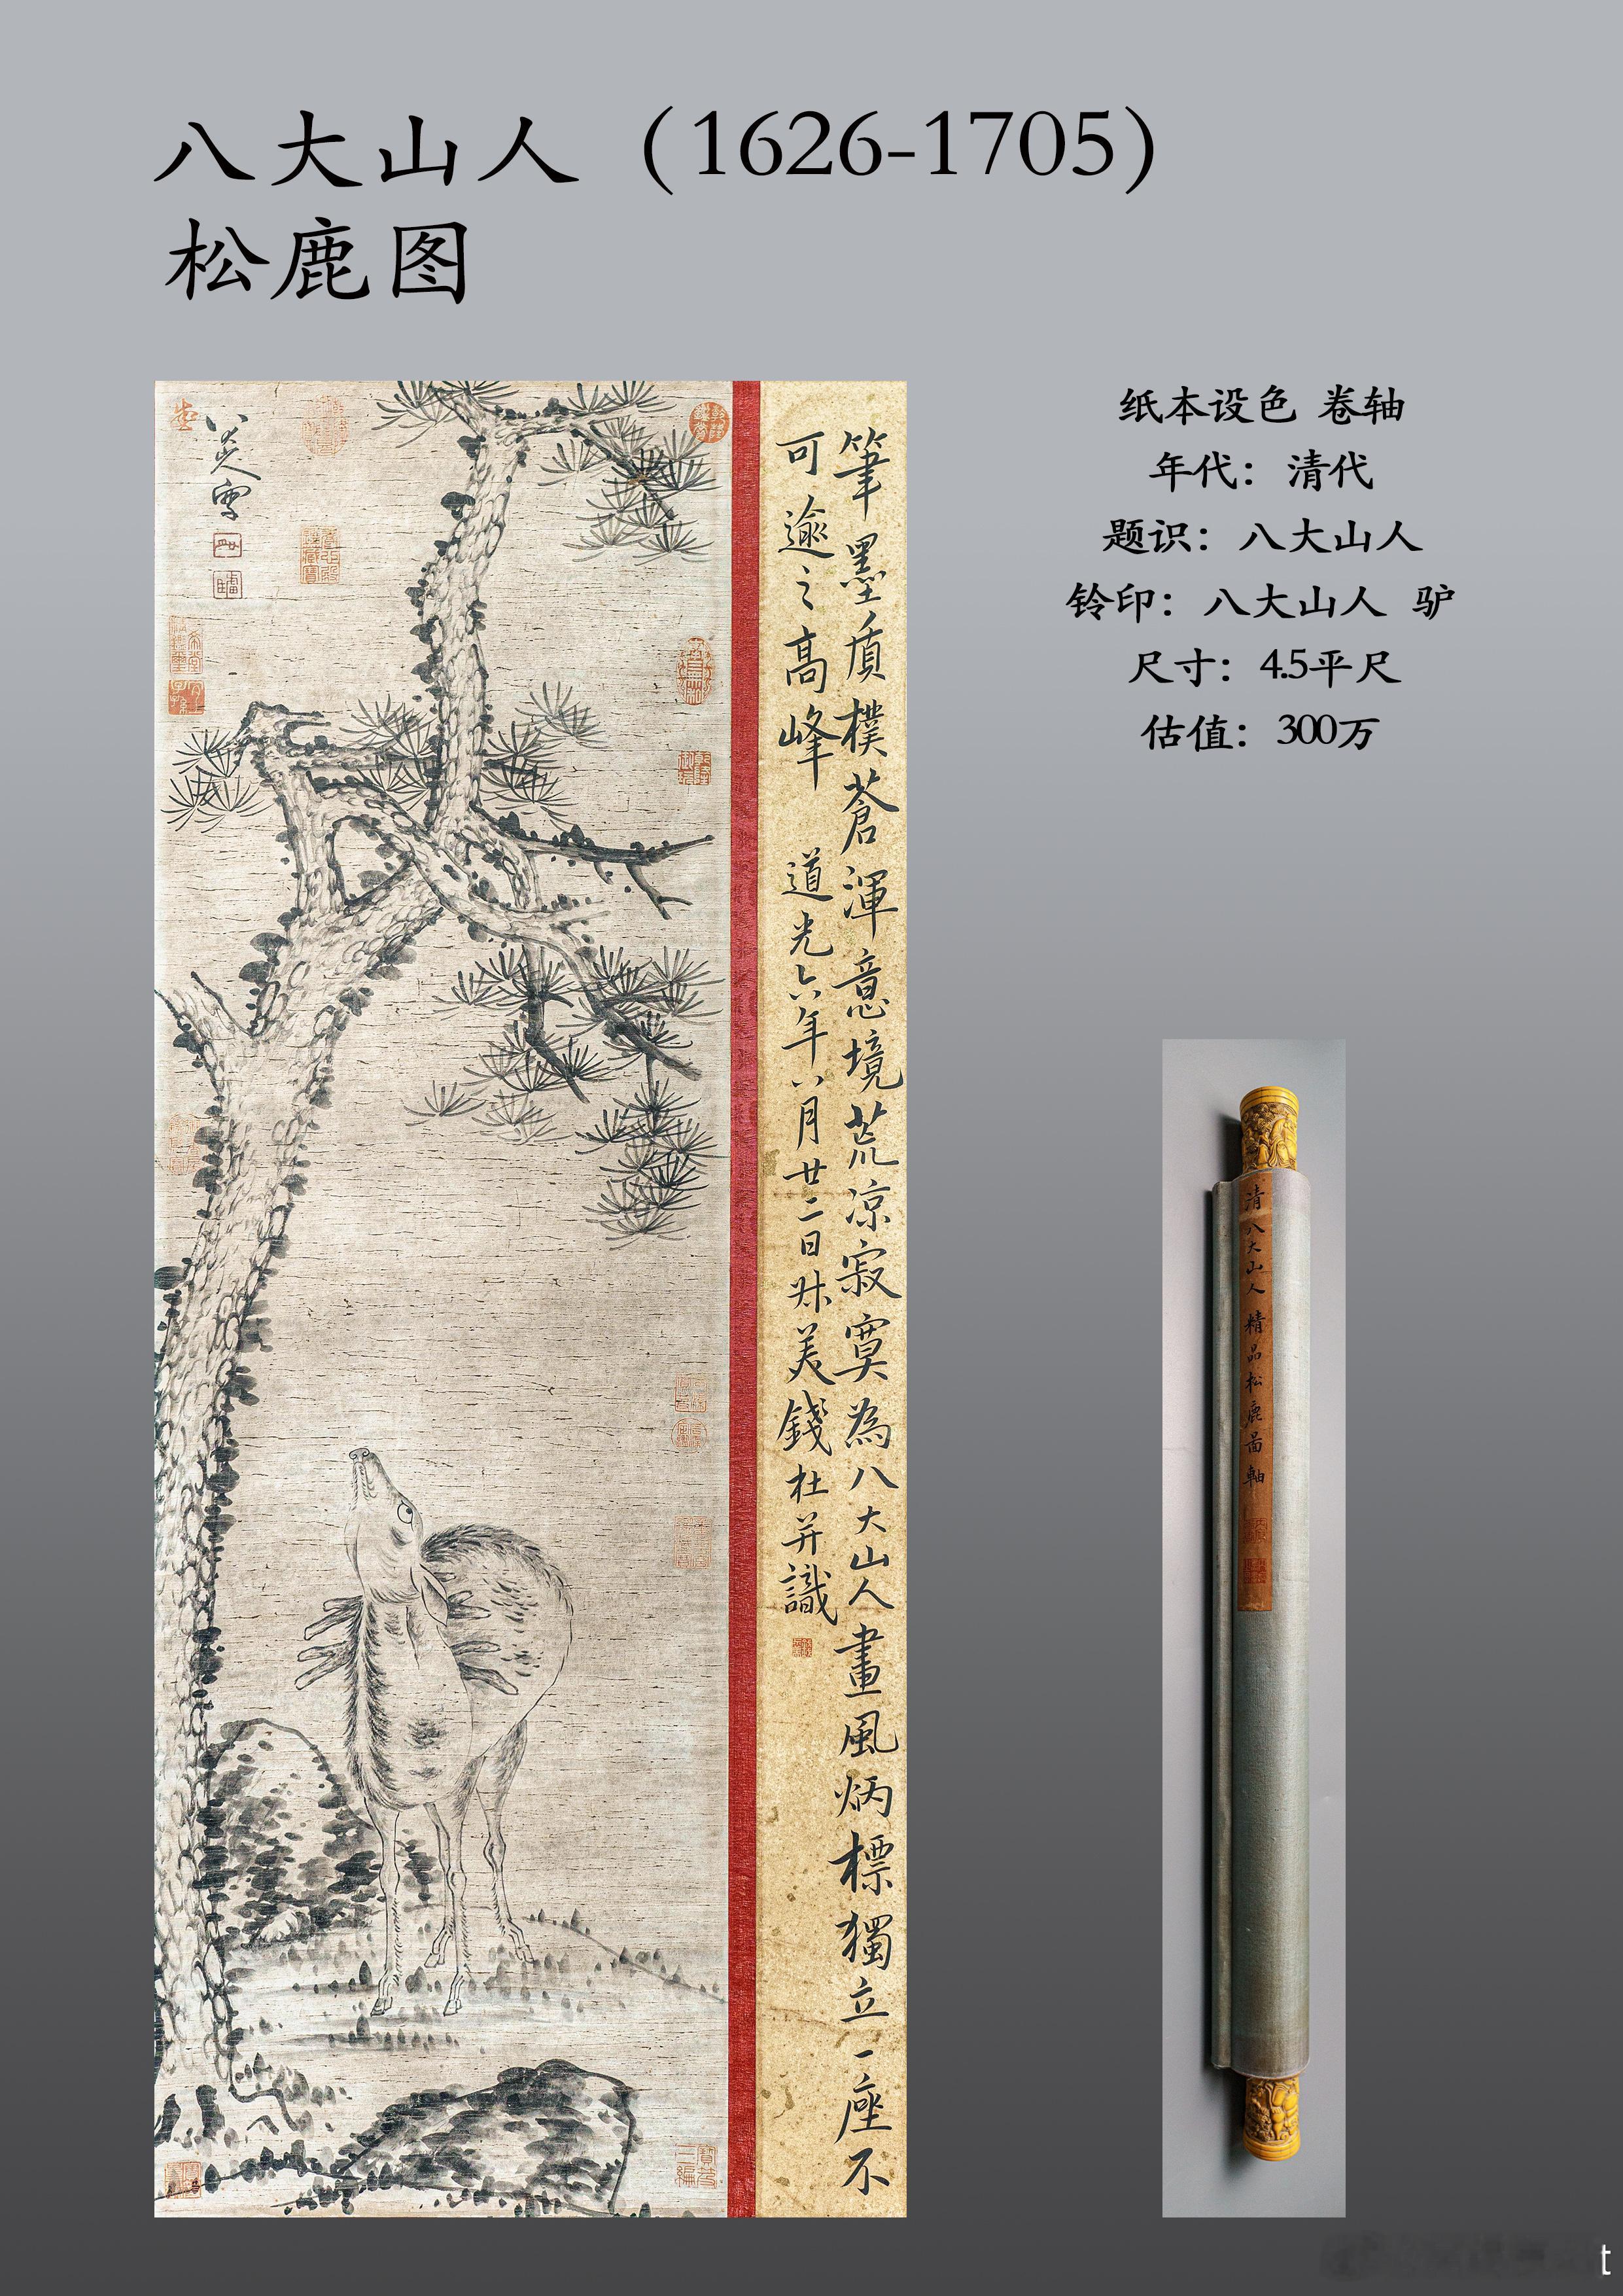 八大山人（1626-1705）
松鹿图
纸本设色 卷轴
年代：清代
题识：八大山人
铃印：八大山人 驴
尺寸：4.5平尺
估值：300万
筆墨質樸蒼渾意境荒凉寂寞為八大山人畫風炳標獨立一座不
可逾之高峰 道光六年八月廿二日叔美錢杜并識
清八大山人精品松鹿圖軸
t